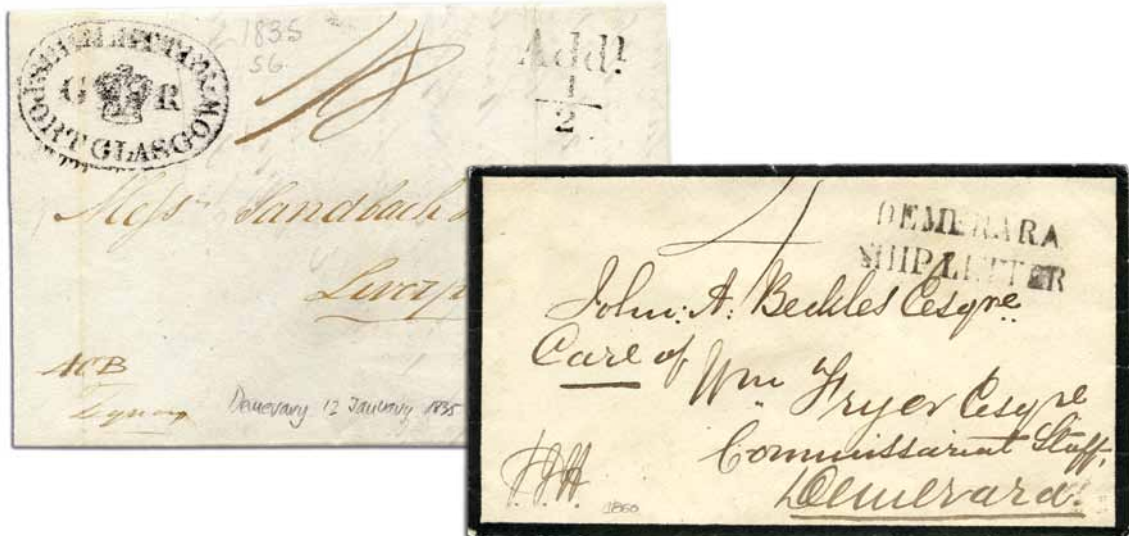 SHIP LETTER
G R
PORT GLASGOW
1835
SG
Addl
1
2
Messrs Sandbach
Liverp
Demerary 12 January 1835
DEMERARA
SHIP LETTER
4
John: A: Beckles Esqre
Care of
Wm Fryer Esqre
Commissariat Staff,
Demerara
1860